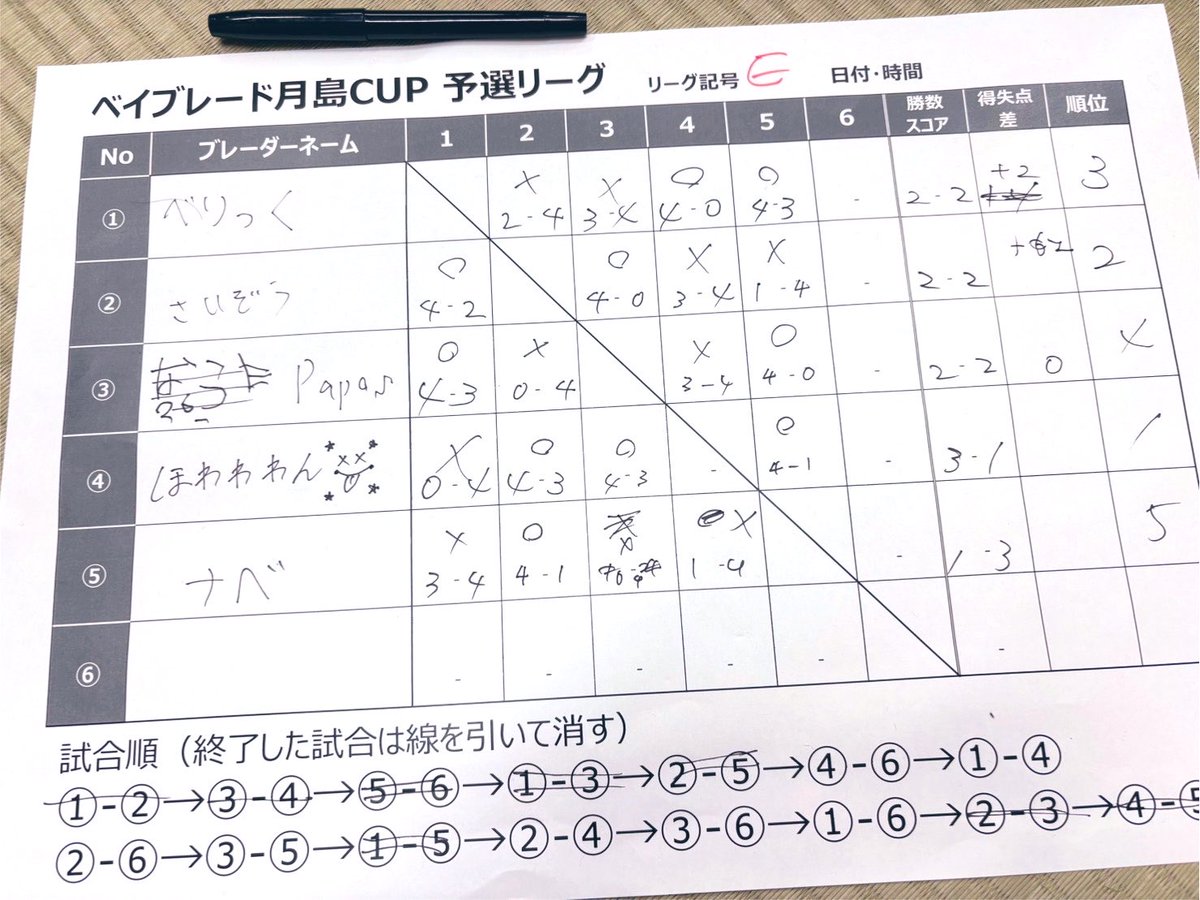 ベイブレード月島CUP 予選リーグ リーグ記号 E 日付・時間
No ブレーダーネーム 1 2 3 4 5 6 勝数スコア 得失点差 順位
① べりっく × 2-4 × 3-4 ○ 4-0 ○ 4-3 - 2-2 +2 3
② さいぞう ○ 4-2 ○ 4-0 × 3-4 × 1-4 - 2-2 2
③ Papas ○ 4-3 × 0-4 × 3-4 ○ 4-0 - 2-2 0
④ ほわわわん × 0-4 ○ 4-3 ○ 4-3 - ○ 4-1 - 3-1 1
⑤ ナベ × 3-4 ○ 4-1 × × 1-4 - 1-3 5
⑥ - - - - - -
試合順（終了した試合は線を引いて消す）
①-②→③-④→⑤-⑥→①-③→②-⑤→④-⑥→①-④
②-⑥→③-⑤→①-⑤→②-④→③-⑥→①-⑥→②-③→④-⑤